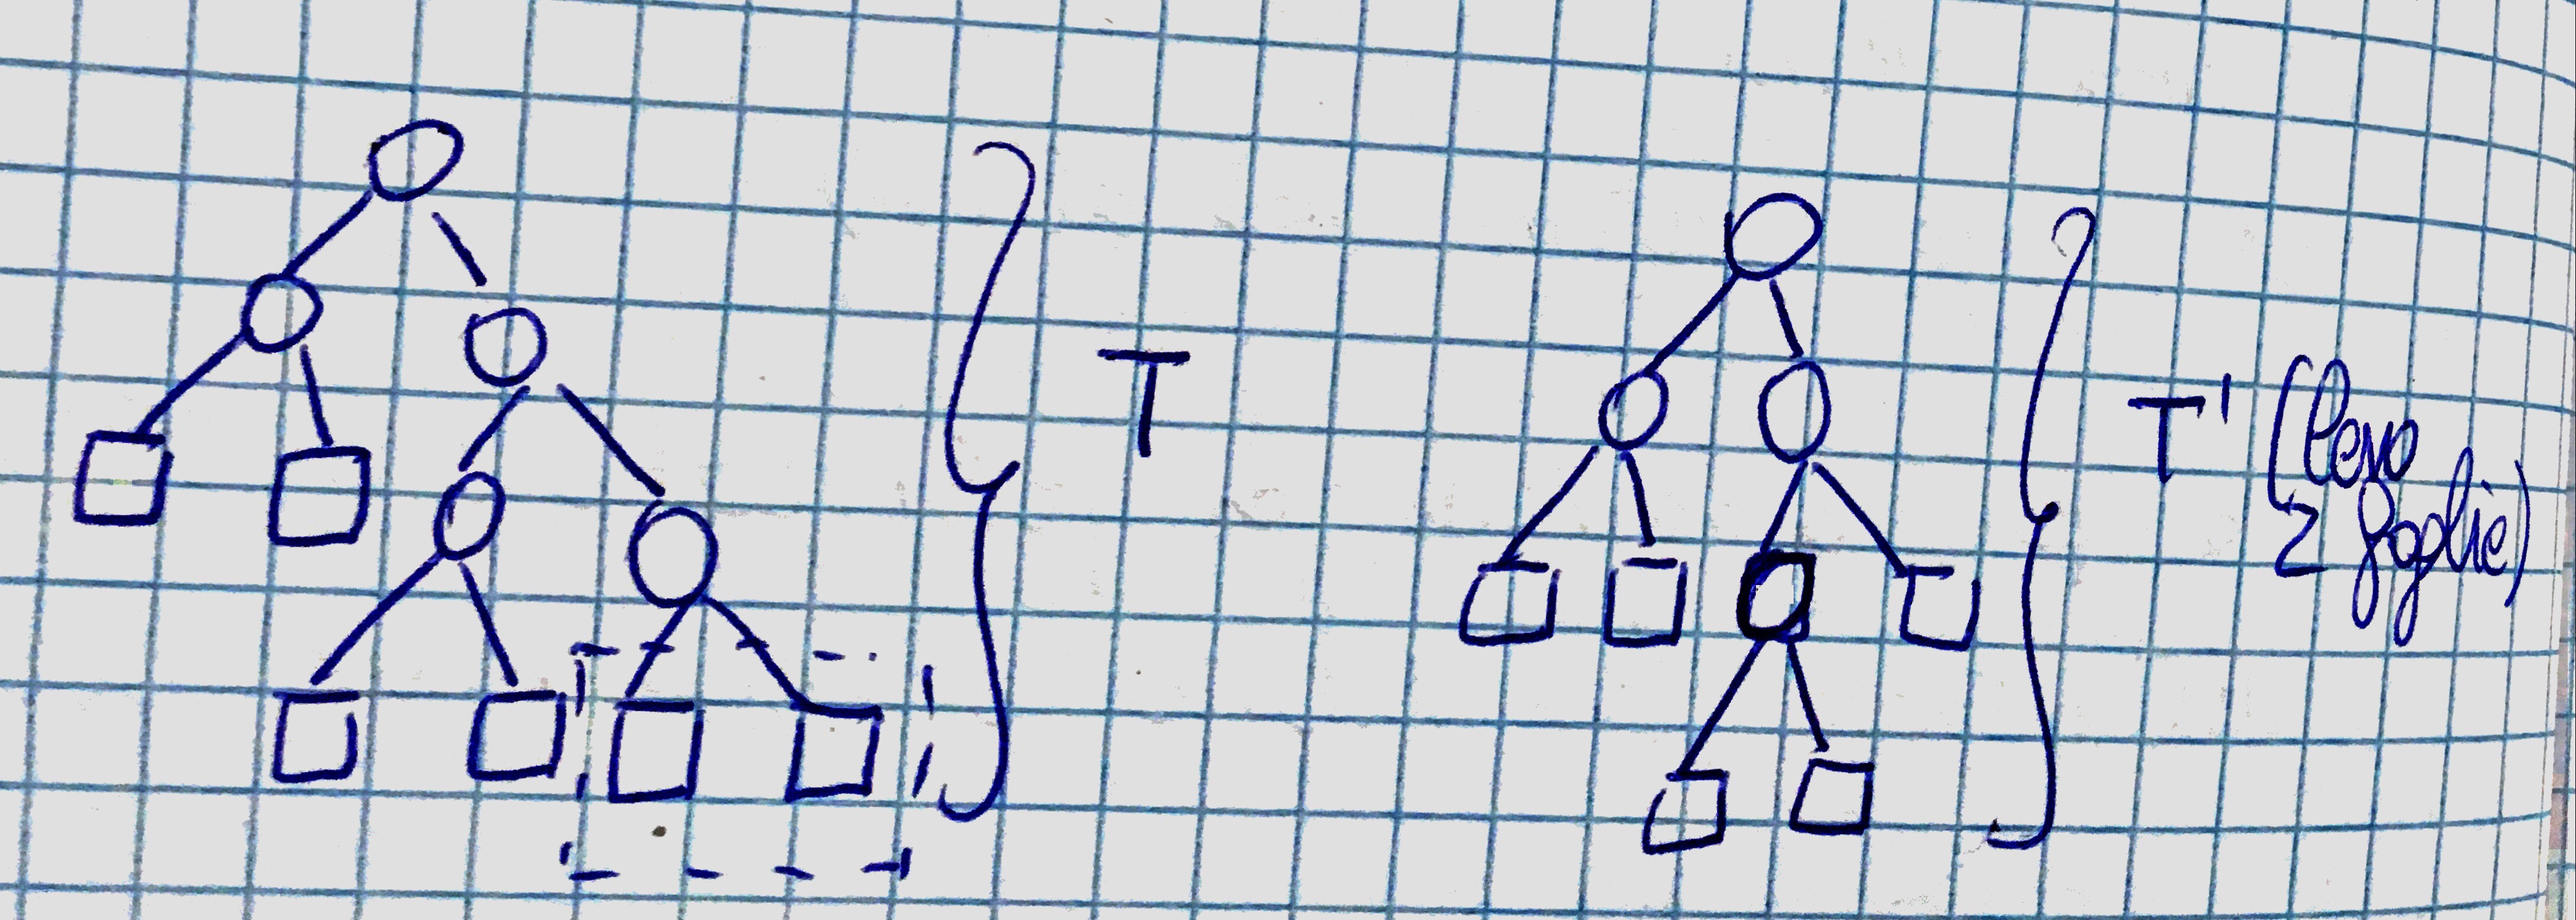 T
T' (levo
2 foglie)